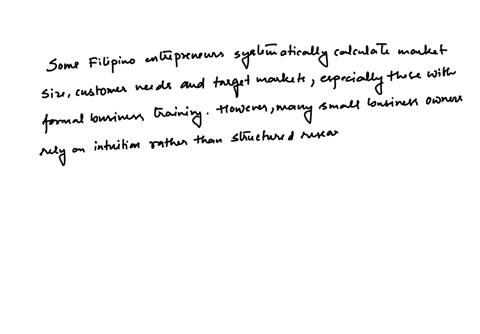 Some Filipino entrepreneurs systematically calculate market
size, customer needs and target markets, especially those with
formal business training. However, many small business owners
rely on intuition rather than structured resear